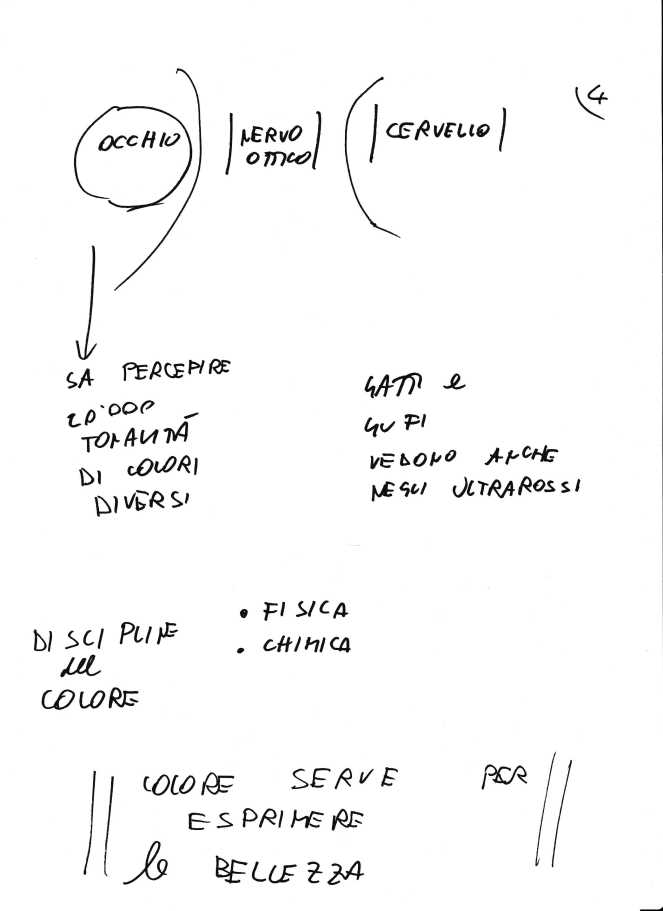 4
OCCHIO
NERVO
OTTICO
CERVELLO
SA PERCEPIRE
20'000
TONALITÁ
DI COLORI
DIVERSI
GATTI e
GUFI
VEDONO ANCHE
NEGLI ULTRAROSSI
DISCIPLINE
del
COLORE
• FISICA
• CHIMICA
COLORE SERVE PER
ESPRIMERE
la BELLEZZA